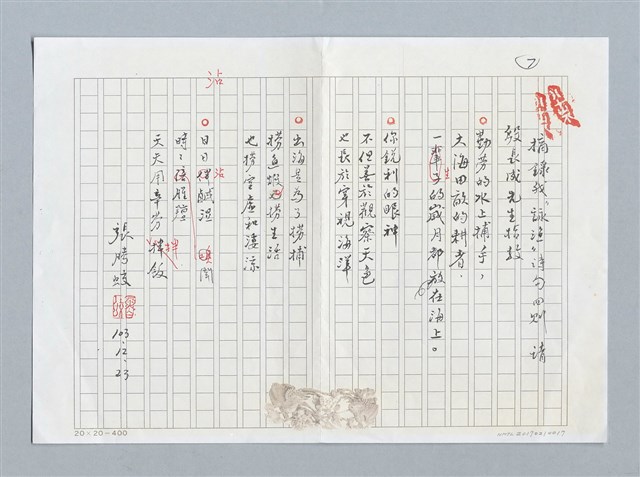 7
摘錄我「詠漁」詩句四則 請
殷長成先生指教
勤勞的水上捕手,
大海田畝的耕者.
一輩子的歲月都放在海上。
生
你銳利的眼神
不但善於觀察天色
也長於穿視海洋
出海是為了捞捕
捞魚蝦也捞生活
也捞空虛和淒涼
沾
日日 鹹溼 聞
沾
時時
天天用辛勞拌飯
拌
張騰蛟
103.12.23
20×20=400